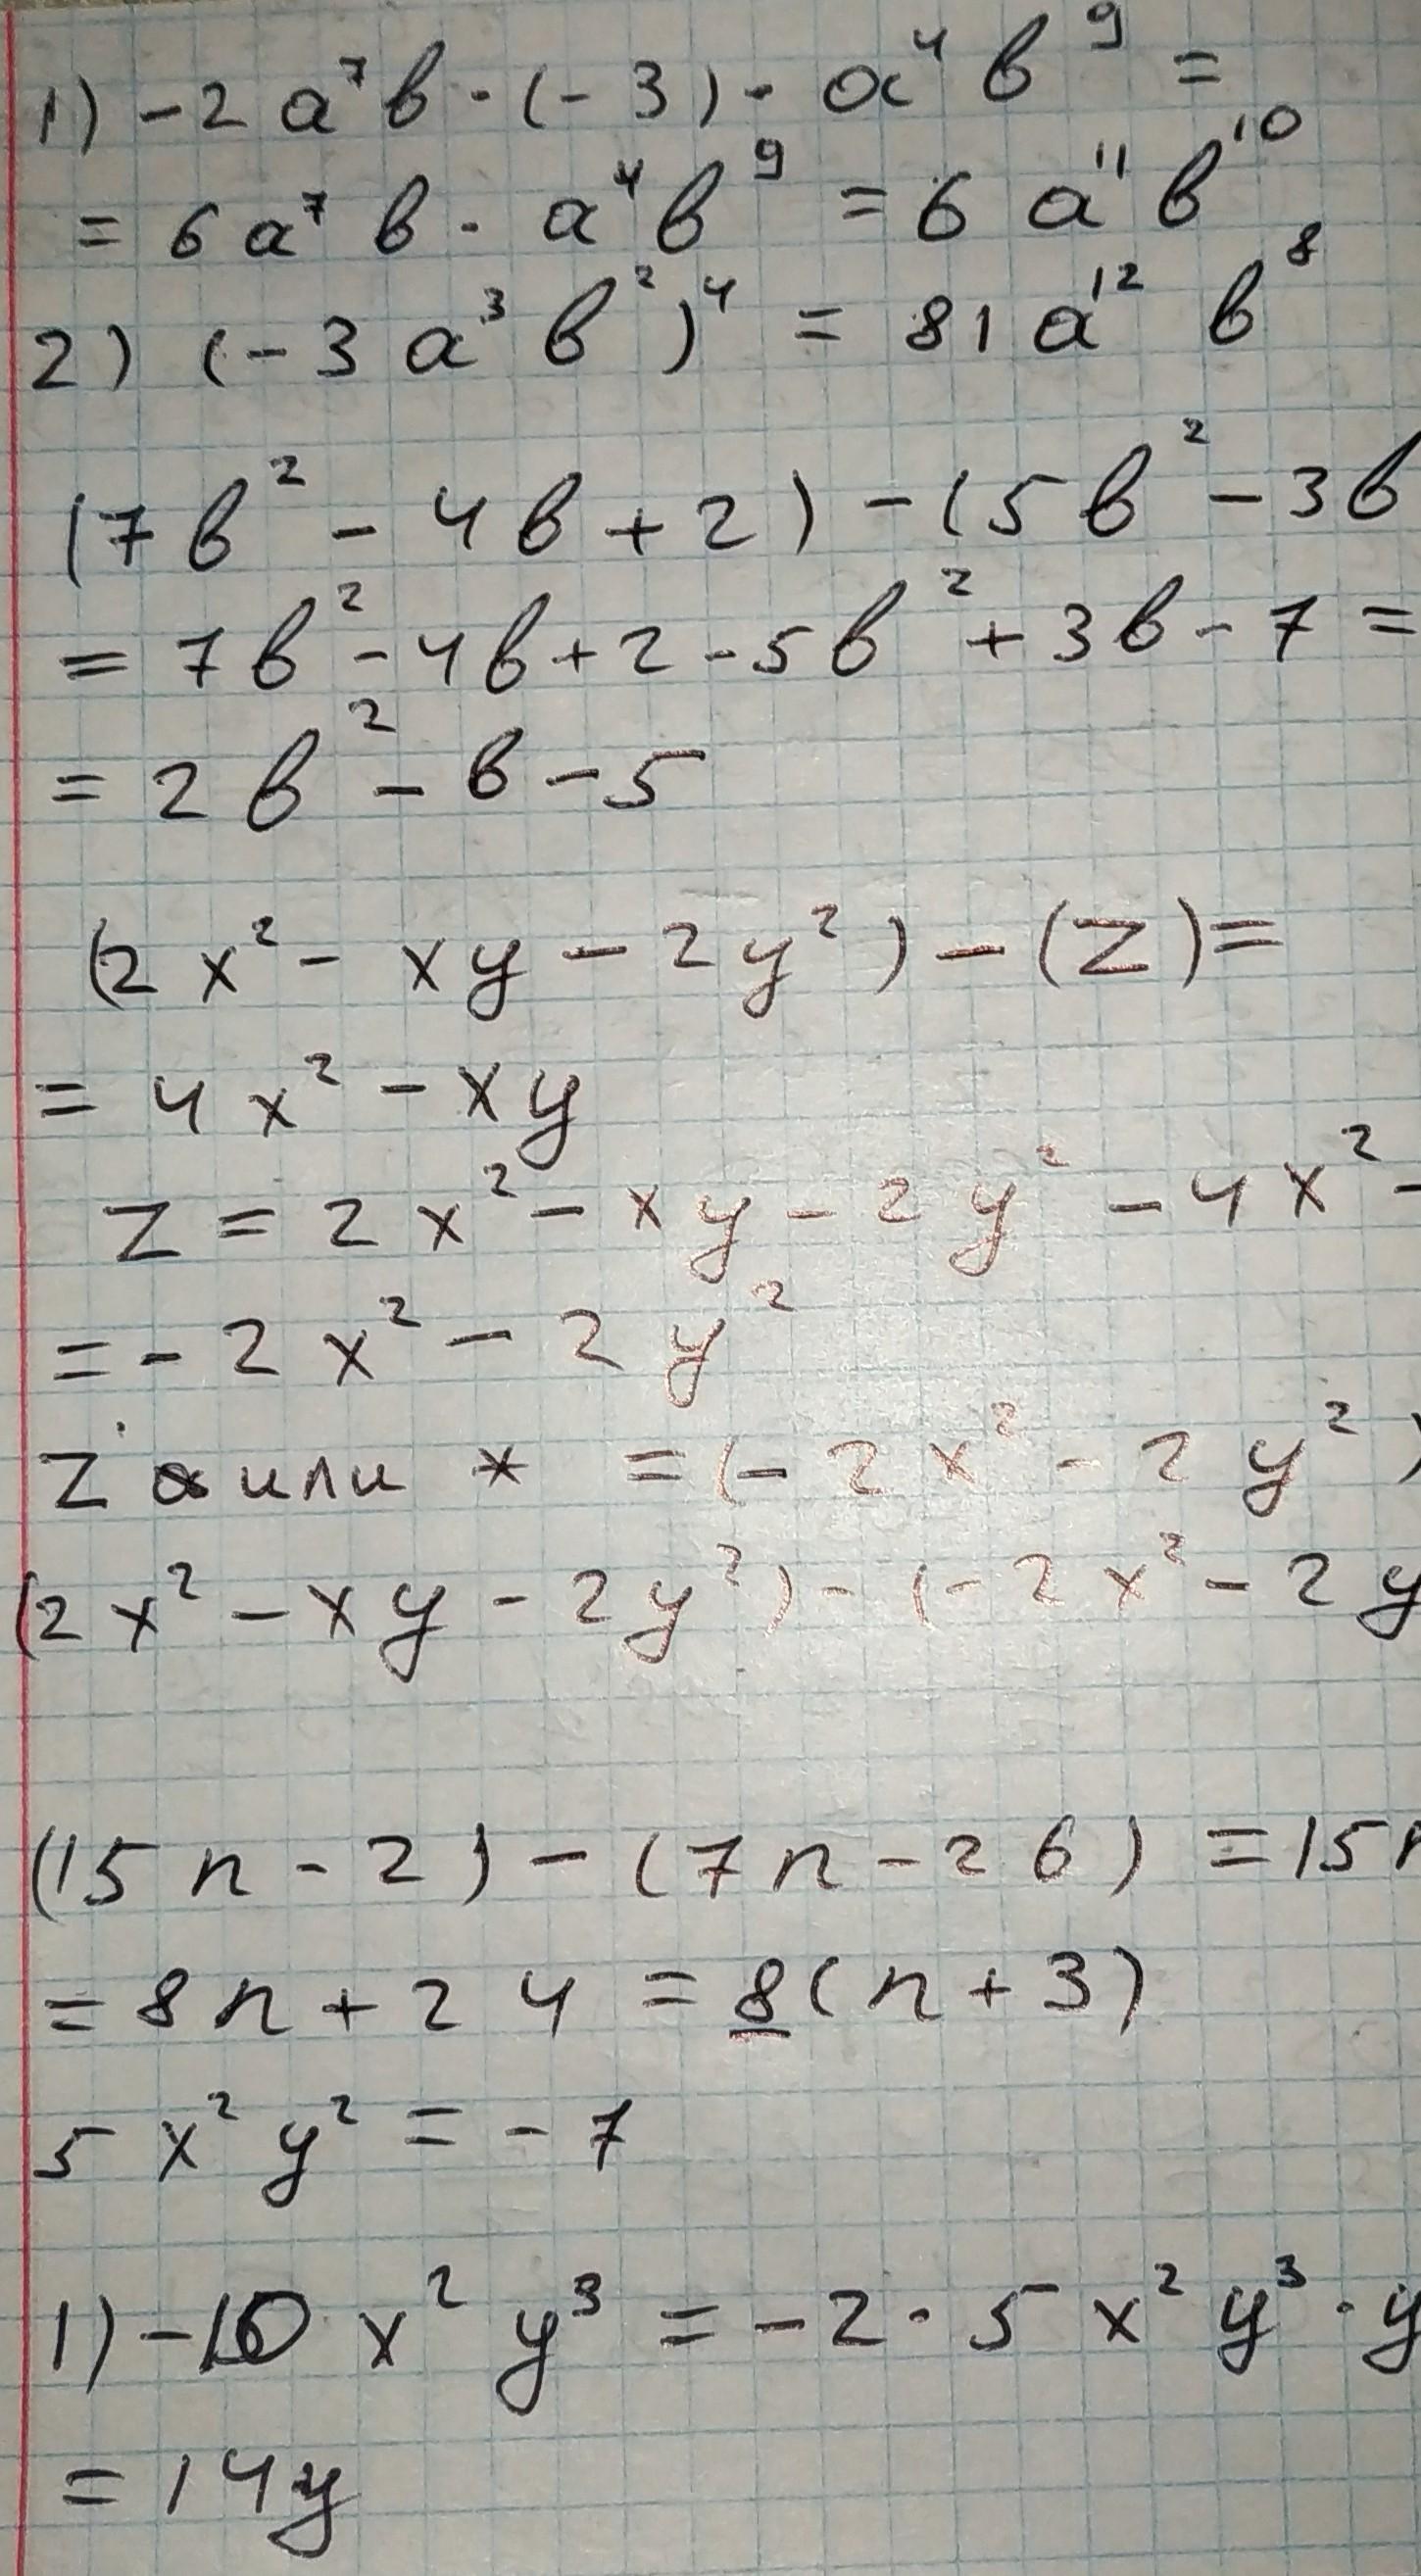 1) -2a⁷b · (-3) · a⁴b⁹ =
= 6a⁷b · a⁴b⁹ = 6a¹¹b¹⁰
2) (-3a³b²)⁴ = 81a¹²b⁸
(7b² - 4b + 2) - (5b² - 3b
= 7b² - 4b + 2 - 5b² + 3b - 7 =
= 2b² - b - 5
(2x² - xy - 2y²) - (z) =
= 4x² - xy
z = 2x² - xy - 2y² - 4x² -
= -2x² - 2y²
z или * = (-2x² - 2y²)
(2x² - xy - 2y²) - (-2x² - 2y
(15n - 2) - (7n - 26) = 15n
= 8n + 24 = 8(n + 3)
5x²y² = -7
1) -10x²y³ = -2 · 5x²y³ · y
= 14y